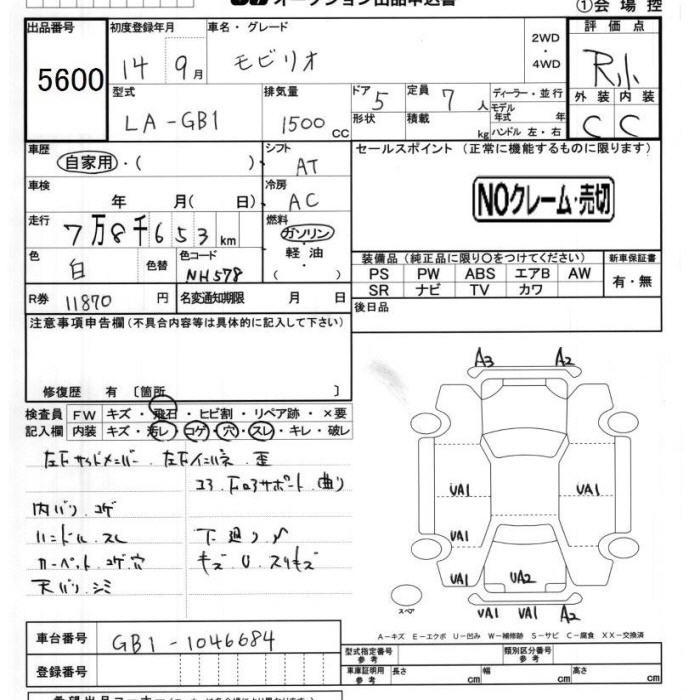 オークション出品申込書
①会場控
出品番号 初度登録年月 車名・グレード 2WD ・ 4WD 評価点
5600 14 9月 モビリオ R小
型式 排気量 ドア 5 定員 7人 ディーラー・並行 外装 内装
LA-GB1 1500 CC 形状 積載 kg モデル年式 年 ハンドル 左・右 C C
車歴 自家用・( ) シフト AT セールスポイント (正常に機能するものに限ります)
車検 年 月( 日) 冷房 AC NOクレーム・売切
走行 7万8千653km 燃料 ガソリン・軽油・( )
色 白 色替 色コード NH578 装備品 (純正品に限り〇をつけてください) 新車保証書
PS PW ABS エアB AW 有・無
SR ナビ TV カワ
R券 11870 円 名変通知期限 月 日 後日品
注意事項申告欄 (不具合内容等は具体的に記入して下さい)
修復歴 有 〔箇所 〕
検査員 FW キズ・飛石・ヒビ割・リペア跡・×要
記入欄 内装 キズ・汚レ・コゲ・穴・スレ・キレ・破レ
左下サイドメンバー、左下インパネ、歪
コア、下ロアサポート 曲り
内バリ、コゲ
ハンドル、スレ 下廻り、サ
カーペット、コゲ、穴 キズ、U、スリキズ
天バリ、シミ
A3 A2
UA1 UA1
UA1
UA1 UA2
スペア UA1 UA1 A2
A-キズ E-エクボ U-凹み W-補修跡 S-サビ C-腐食 XX-交換済
車台番号 GB1-1046684
型式指定番号 参考 類別区分番号 参考
登録番号 車庫証明用 参考 長さ cm 幅 cm 高さ cm